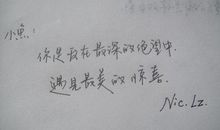 小鱼:
你是我在最深的绝望中,
遇见最美的惊喜.
Nic. Lz.